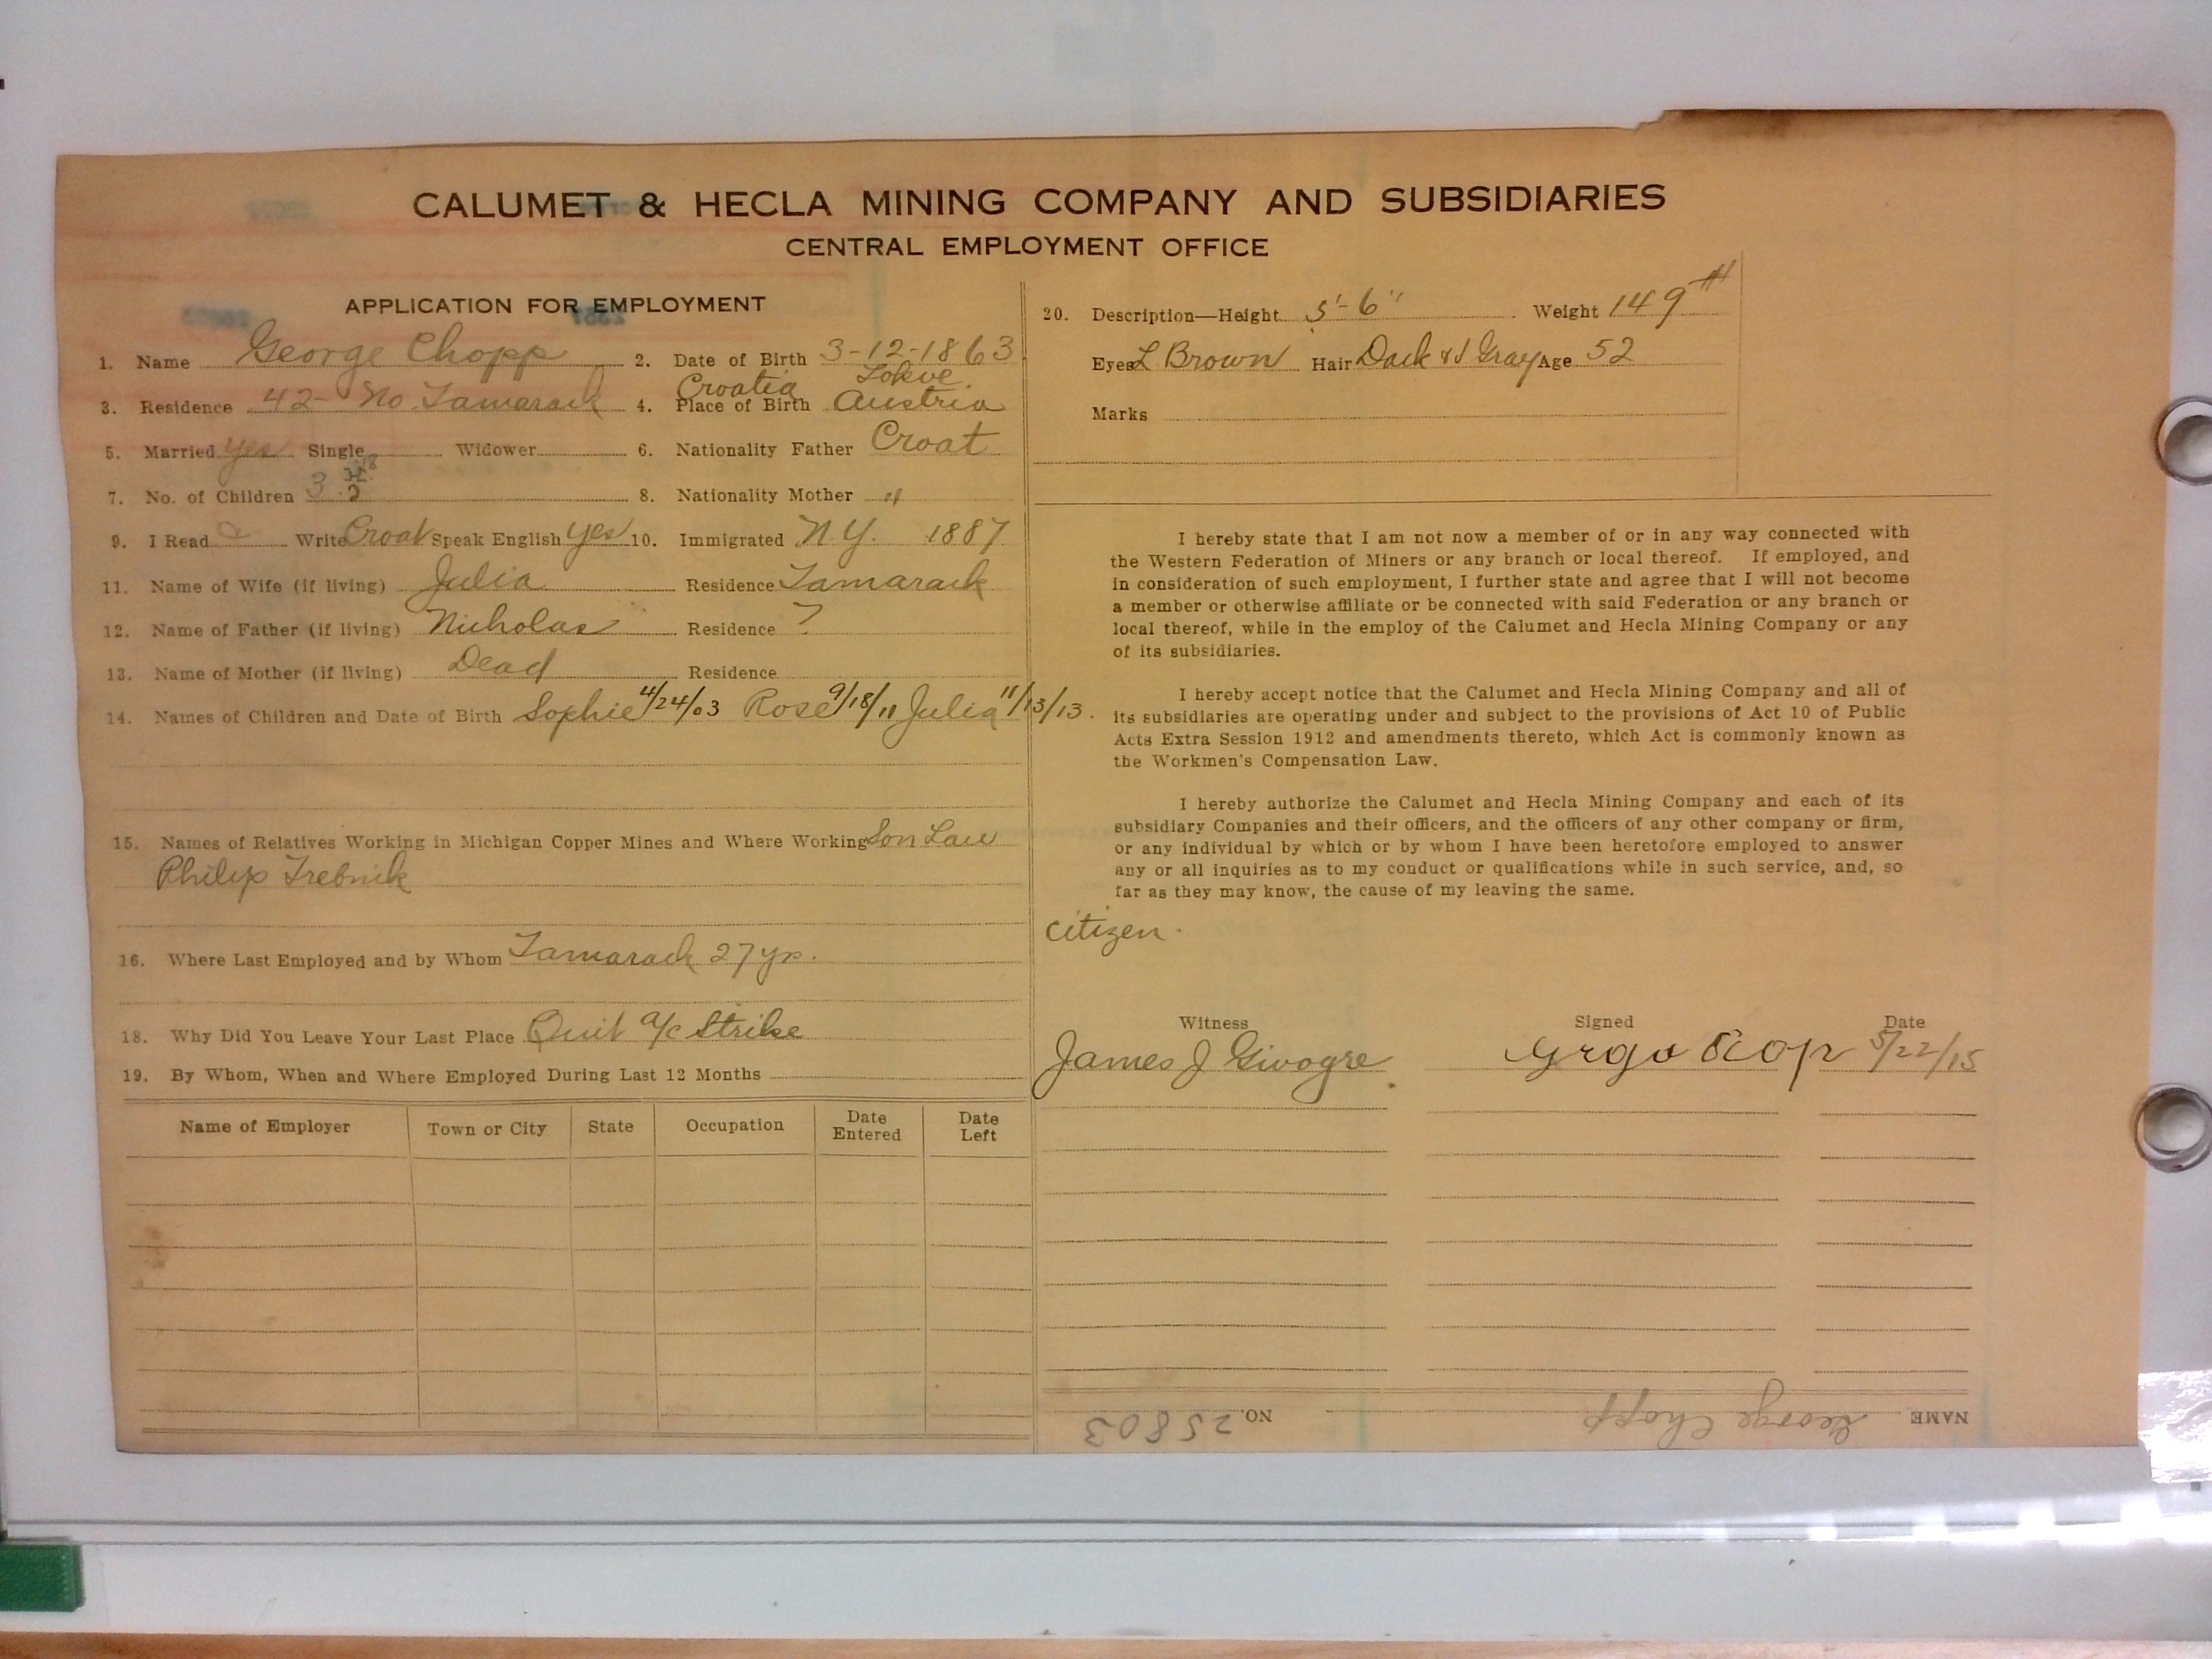 CALUMET & HECLA MINING COMPANY AND SUBSIDIARIES
CENTRAL EMPLOYMENT OFFICE
APPLICATION FOR EMPLOYMENT
1. Name George Chopp 2. Date of Birth 3-12-1863
Croatia Lokve
3. Residence 42 No. Tamarack 4. Place of Birth Austria
5. Married yes Single Widower 6. Nationality Father Croat
7. No. of Children 3 8. Nationality Mother "
9. I Read & Write Croat Speak English yes 10. Immigrated N.Y. 1887
11. Name of Wife (if living) Julia Residence Tamarack
12. Name of Father (if living) Nicholas Residence ?
13. Name of Mother (if living) Dead Residence
14. Names of Children and Date of Birth Sophie 4/24/03 Rose 9/18/11 Julia 11/13/13.
15. Names of Relatives Working in Michigan Copper Mines and Where Working Son Law
Philip Trebnik
16. Where Last Employed and by Whom Tamarack 27 yrs.
18. Why Did You Leave Your Last Place Quit a/c Strike
19. By Whom, When and Where Employed During Last 12 Months
Name of Employer Town or City State Occupation Date Entered Date Left
20. Description—Height 5'-6" Weight 149 #
Eyes L Brown Hair Dark & Gray Age 52
Marks
I hereby state that I am not now a member of or in any way connected with
the Western Federation of Miners or any branch or local thereof. If employed, and
in consideration of such employment, I further state and agree that I will not become
a member or otherwise affiliate or be connected with said Federation or any branch or
local thereof, while in the employ of the Calumet and Hecla Mining Company or any
of its subsidiaries.
I hereby accept notice that the Calumet and Hecla Mining Company and all of
its subsidiaries are operating under and subject to the provisions of Act 10 of Public
Acts Extra Session 1912 and amendments thereto, which Act is commonly known as
the Workmen's Compensation Law.
I hereby authorize the Calumet and Hecla Mining Company and each of its
subsidiary Companies and their officers, and the officers of any other company or firm,
or any individual by which or by whom I have been heretofore employed to answer
any or all inquiries as to my conduct or qualifications while in such service, and, so
far as they may know, the cause of my leaving the same.
citizen.
Witness Signed Date
James J Givogre Grgo 5/22/15
NAME George Chopp NO. 25803